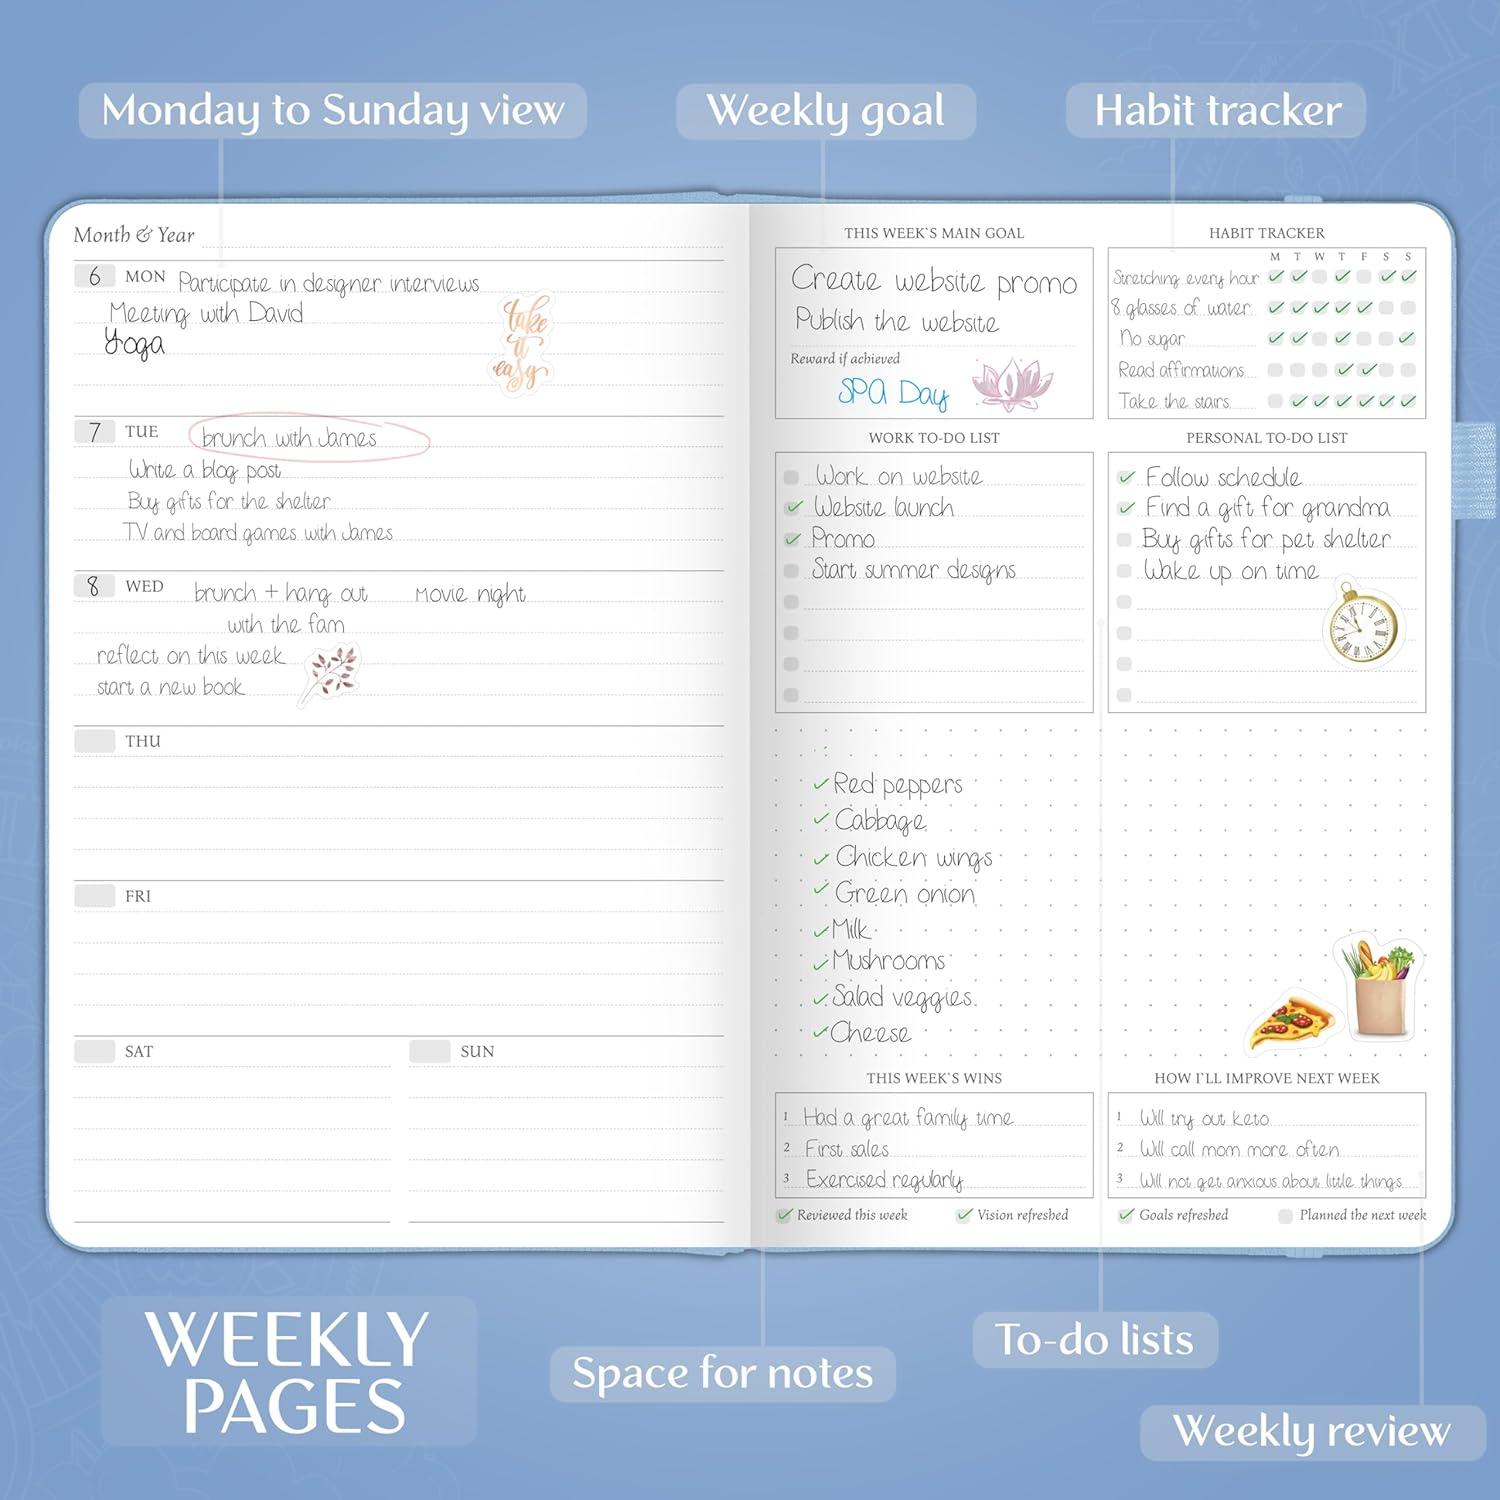 Monday to Sunday view
Weekly goal
Habit tracker
Month & Year
6 MON Participate in designer interviews
Meeting with David
Yoga
take
it
easy
7 TUE brunch with James
Write a blog post
Buy gifts for the shelter
TV and board games with James
8 WED brunch + hang out Movie night
with the fam
reflect on this week
start a new book
THU
FRI
SAT SUN
THIS WEEK`S MAIN GOAL
Create website promo
Publish the website
Reward if achieved
SPA Day
HABIT TRACKER
M T W T F S S
Stretching every hour
8 glasses of water
No sugar
Read affirmations
Take the stairs
WORK TO-DO LIST
Work on website
Website launch
Promo
Start summer designs
PERSONAL TO-DO LIST
Follow schedule
Find a gift for grandma
Buy gifts for pet shelter
Wake up on time
Red peppers
Cabbage
Chicken wings
Green onion
Milk
Mushrooms
Salad veggies
Cheese
THIS WEEK`S WINS
1 Had a great family time
2 First sales
3 Exercised regularly
HOW I`LL IMPROVE NEXT WEEK
1 Will try out keto
2 Will call mom more often
3 Will not get anxious about little things
Reviewed this week Vision refreshed Goals refreshed Planned the next week
WEEKLY
PAGES
Space for notes
To-do lists
Weekly review